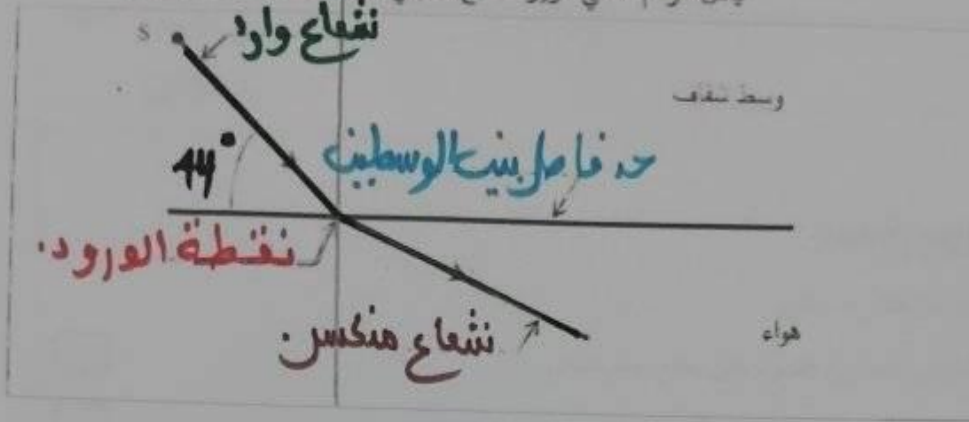 شعاع وارد
S
وسط شفاف
44°
حد فاصل بين الوسطين
نقطة الورود.
شعاع منكسر.
هواء